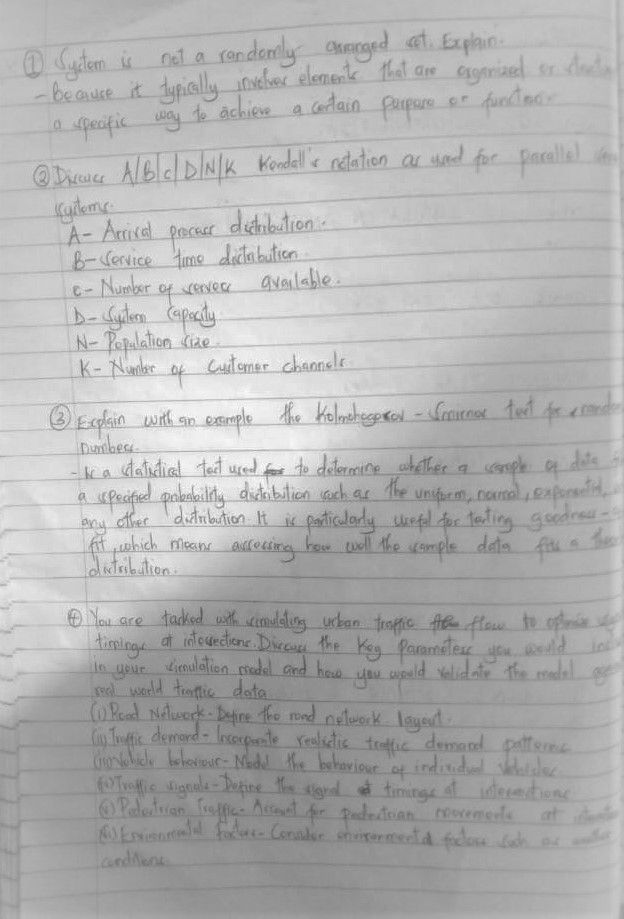 ① System is not a randomly arranged set. Explain.
- Because it typically involves elements that are organized or
a specific way to achieve a certain purpose or function.
② Discuss A/B/C/D/N/K Kendall's notation as used for parallel
systems.
A- Arrival process distribution.
B- Service time distribution.
C- Number of servers available.
D- System Capacity
N- Population size
K- Number of Customer channels
③ Explain with an example the - Smirnov test for
numbers.
- Is a statistical test used to determine whether a sample of data
a specified probability distribution such as the uniform, normal, exponential,
any other distribution. It is particularly useful for testing goodness-
fit, which means assessing how well the sample data fits a
distribution.
④ You are tasked with simulating urban traffic flow to optimize
timings at intersections. Discuss the key parameters you would
in your simulation model and how you would validate the model
real world traffic data
(i) Road Network- Define the road network layout.
(ii) Traffic demand- Incorporate realistic traffic demand patterns
(iii) Vehicle behaviour- Model the behaviour of individual vehicles
(iv) Traffic signals- Define the signal timings at intersections
(v) Pedestrian Traffic- Account for pedestrian movements at
(vi) Factors- Consider environmental factors such as
conditions.